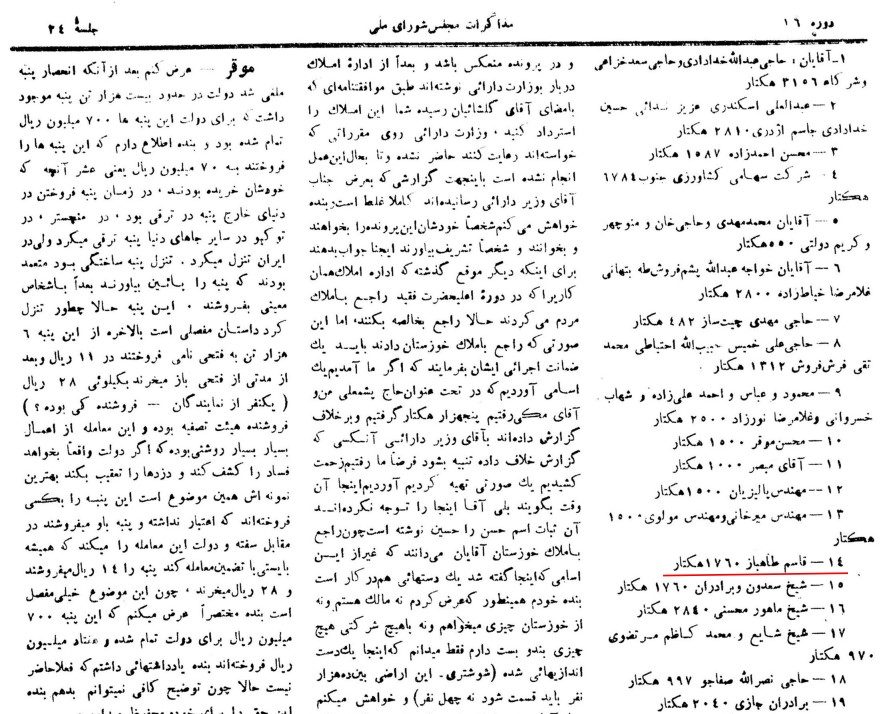 دوره ۱۶
مذاکرات مجلس شورای ملی
جلسهٔ ۲۴
۱ـ آقایان : حاجی عبدالله خدادادی وحاجی سعدخزاعی
وشرکاء ۳۱۵۶ هکتار
۲ – عبدالعلی اسکندری عزیز ندائی حسین
خدادادی جاسم اژدری ۲۸۱۰ هکتار
۳ – محسن احمدزاده ۱۵۸۷ هکتار
۴ – شرکت سهامی کشاورزی جنوب ۶۷۸۴
هکتار
۵ – آقایان محمدمهدی وحاجی خان و منوچهر
و کریم دولتی ۵۵۰ هکتار
۶ – آقایان خواجه عبدالله پشم‌فروش طه بتهانی
غلامرضا خیاط‌زاده ۲۸۰۰ هکتار
۷ – حاجی مهدی چیت‌ساز ۴۸۲ هکتار
۸ – حاجی علی خمیس حبیب‌الله احتیاطی محمد
تقی فرش‌فروش ۱۳۱۲ هکتار
۹ – محمود و عباس و احمد علی‌زاده و شهاب
خسروانی وغلامرضا نورزاد ۲۵۰۰ هکتار
۱۰ – محسن موقر ۱۵۰۰ هکتار
۱۱ – آقای مبصر ۱۰۰۰ هکتار
۱۲ – مهندس پالیزیان ۱۵۰۰ هکتار
۱۳ – مهندس میرخانی ومهندس مولوی ۱۵۰۰
هکتار
۱۴ – قاسم طاهباز ۱۷۶۰ هکتار
۱۵ – شیخ سعدون وبرادران ۱۷۶۰ هکتار
۱۶ – شیخ ماهور محسنی ۲۸۴۰ هکتار
۱۷ – شیخ شایع و محمد کاظم مرتضوی
۹۷۰ هکتار
۱۸ – حاجی نصرالله صفاجو ۹۹۷ هکتار
۱۹ – برادران جازی ۲۰۴۰ هکتار
و در پرونده منعکس باشد و بعداً از ادارهٔ املاک
دربار بوزارت دارائی نوشته‌اند طبق موافقتنامه‌ای که
بامضای آقای گلشائیان رسیده شما این املاک را
استرداد کنید ، وزارت دارائی روی مقرراتی که
خواسته‌اند رعایت کنند حاضر نشده وتا بحال این عمل
انجام نشده است باینجهت گزارشی که بعرض جناب
آقای وزیر دارائی رسانیده‌اند کاملا غلط است بنده
خواهش می کنم شخصاً خودشان این پرونده را بخواهند
و بخوانند و شخصاً تشریف بیاورند اینجا جواب بدهند
برای اینکه دیگر موقع گذشته که اداره املاک همان
کاریرا که در دورهٔ اعلیحضرت فقید راجع باملاک
مردم می کردند حالا راجع بخالصه بکنند، اما این
صورتی که راجع باملاک خوزستان دادند باید یک
ضمانت اجرائی ایشان بفرمایند که اگر ما آمدیم یک
اسامی آوردیم که در تحت عنوان حاج پشمعلی من و
آقای مکی رفتیم پنجهزار هکتار گرفتیم وبرخلاف
گزارش داده‌اند بآقای وزیر دارائی آنکسی که
گزارش خلاف داده تنبیه بشود فرضاً ما رفتیم زحمت
کشیدیم یک صورتی تهیه کردیم آوردیم اینجا آن
وقت بگویند بلی آقا اینجا را توجه نکرده‌اند
آن ثبات اسم حسن را حسین نوشته است چون راجع
باملاک خوزستان آقایان می‌دانند که غیر از این
اسامی که اینجا گفته شد یک دستهائی هم در کار است
بنده خودم همینطور که عرض کردم نه مالک هستم ونه
از خوزستان چیزی میخواهم ونه باهیچ شرکتی هیچ
چیزی بندو بست دارم فقط میدانم که اینجا یک دست
اندازیهائی شده (شوشتری- این اراضی بین ده هزار
نفر باید قسمت شود نه چهل نفر) و خواهش میکنم
موقر – عرض کنم بعد از آنکه انحصار پنبه
ملغی شد دولت در حدود بیست هزار تن پنبه موجود
داشت که برای دولت این پنبه ها ۷۰۰ میلیون ریال
تمام شده بود و بنده اطلاع دارم که این پنبه ها را
فروختند به ۷۰ میلیون ریال یعنی عشر آنچه که
خودشان خریده بودند ، در زمان پنبه فروختن در
دنیای خارج پنبه در ترقی بود ، در منچستر ، در
توکیو در سایر جاهای دنیا پنبه ترقی میکرد ولی در
ایران تنزل میکرد . تنزل پنبه ساختگی بود متعمد
بودند که پنبه را پائین بیاورند بعداً باشخاص
معینی بفروشند . این پنبه حالا چطور تنزل
کرد داستان مفصلی است بالاخره از این پنبه ۶
هزار تن به فتحی نامی فروختند در ۱۱ ریال وبعد
از مدتی از فتحی باز میخرند بکیلوئی ۲۸ ریال
( یکنفر از نمایندگان – فروشنده کی بوده ؟ )
فروشنده هیئت تصفیه بوده و این معامله از اعمال
بسیار بسیار روشنی بوده که اگر دولت واقعاً بخواهد
فساد را کشف کند و دزدها را تعقیب بکند بهترین
نمونه اش همین موضوع است این پنبه را بکسی
فروخته‌اند که اعتبار نداشته و پنبه باو میفروشند در
مقابل سفته و دولت این معامله را میکند که همیشه
بایستی با تضمین معامله کند پنبه را ۱۴ ریال میفروشند
و ۲۸ ریال میخرند ، چون این موضوع خیلی مفصل
است بنده مختصراً عرض میکنم که این پنبه ۷۰۰
میلیون ریال برای دولت تمام شده و هفتاد میلیون
ریال فروخته‌اند بنده یادداشتهائی داشتم که فعلا حاضر
نیست حالا چون توضیح کافی نمیتوانم بدهم بنده